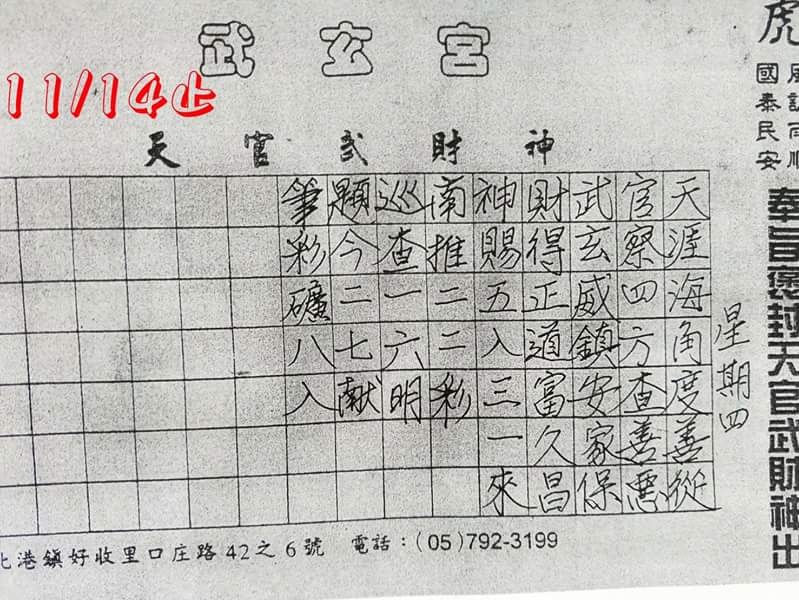 武玄宮
11/14止
天官武財神
虎
風調雨順
國泰民安
奉旨褒封天官武財神出
星期四
天涯海角度善從
官察四方查善惡
武玄威鎮安家保
財得正道富久昌
神賜五入三一來
南推二二彩
巡查一六明
顯今二七献
筆彩礦八入
北港鎮好收里口庄路42之6號 電話：(05)792-3199